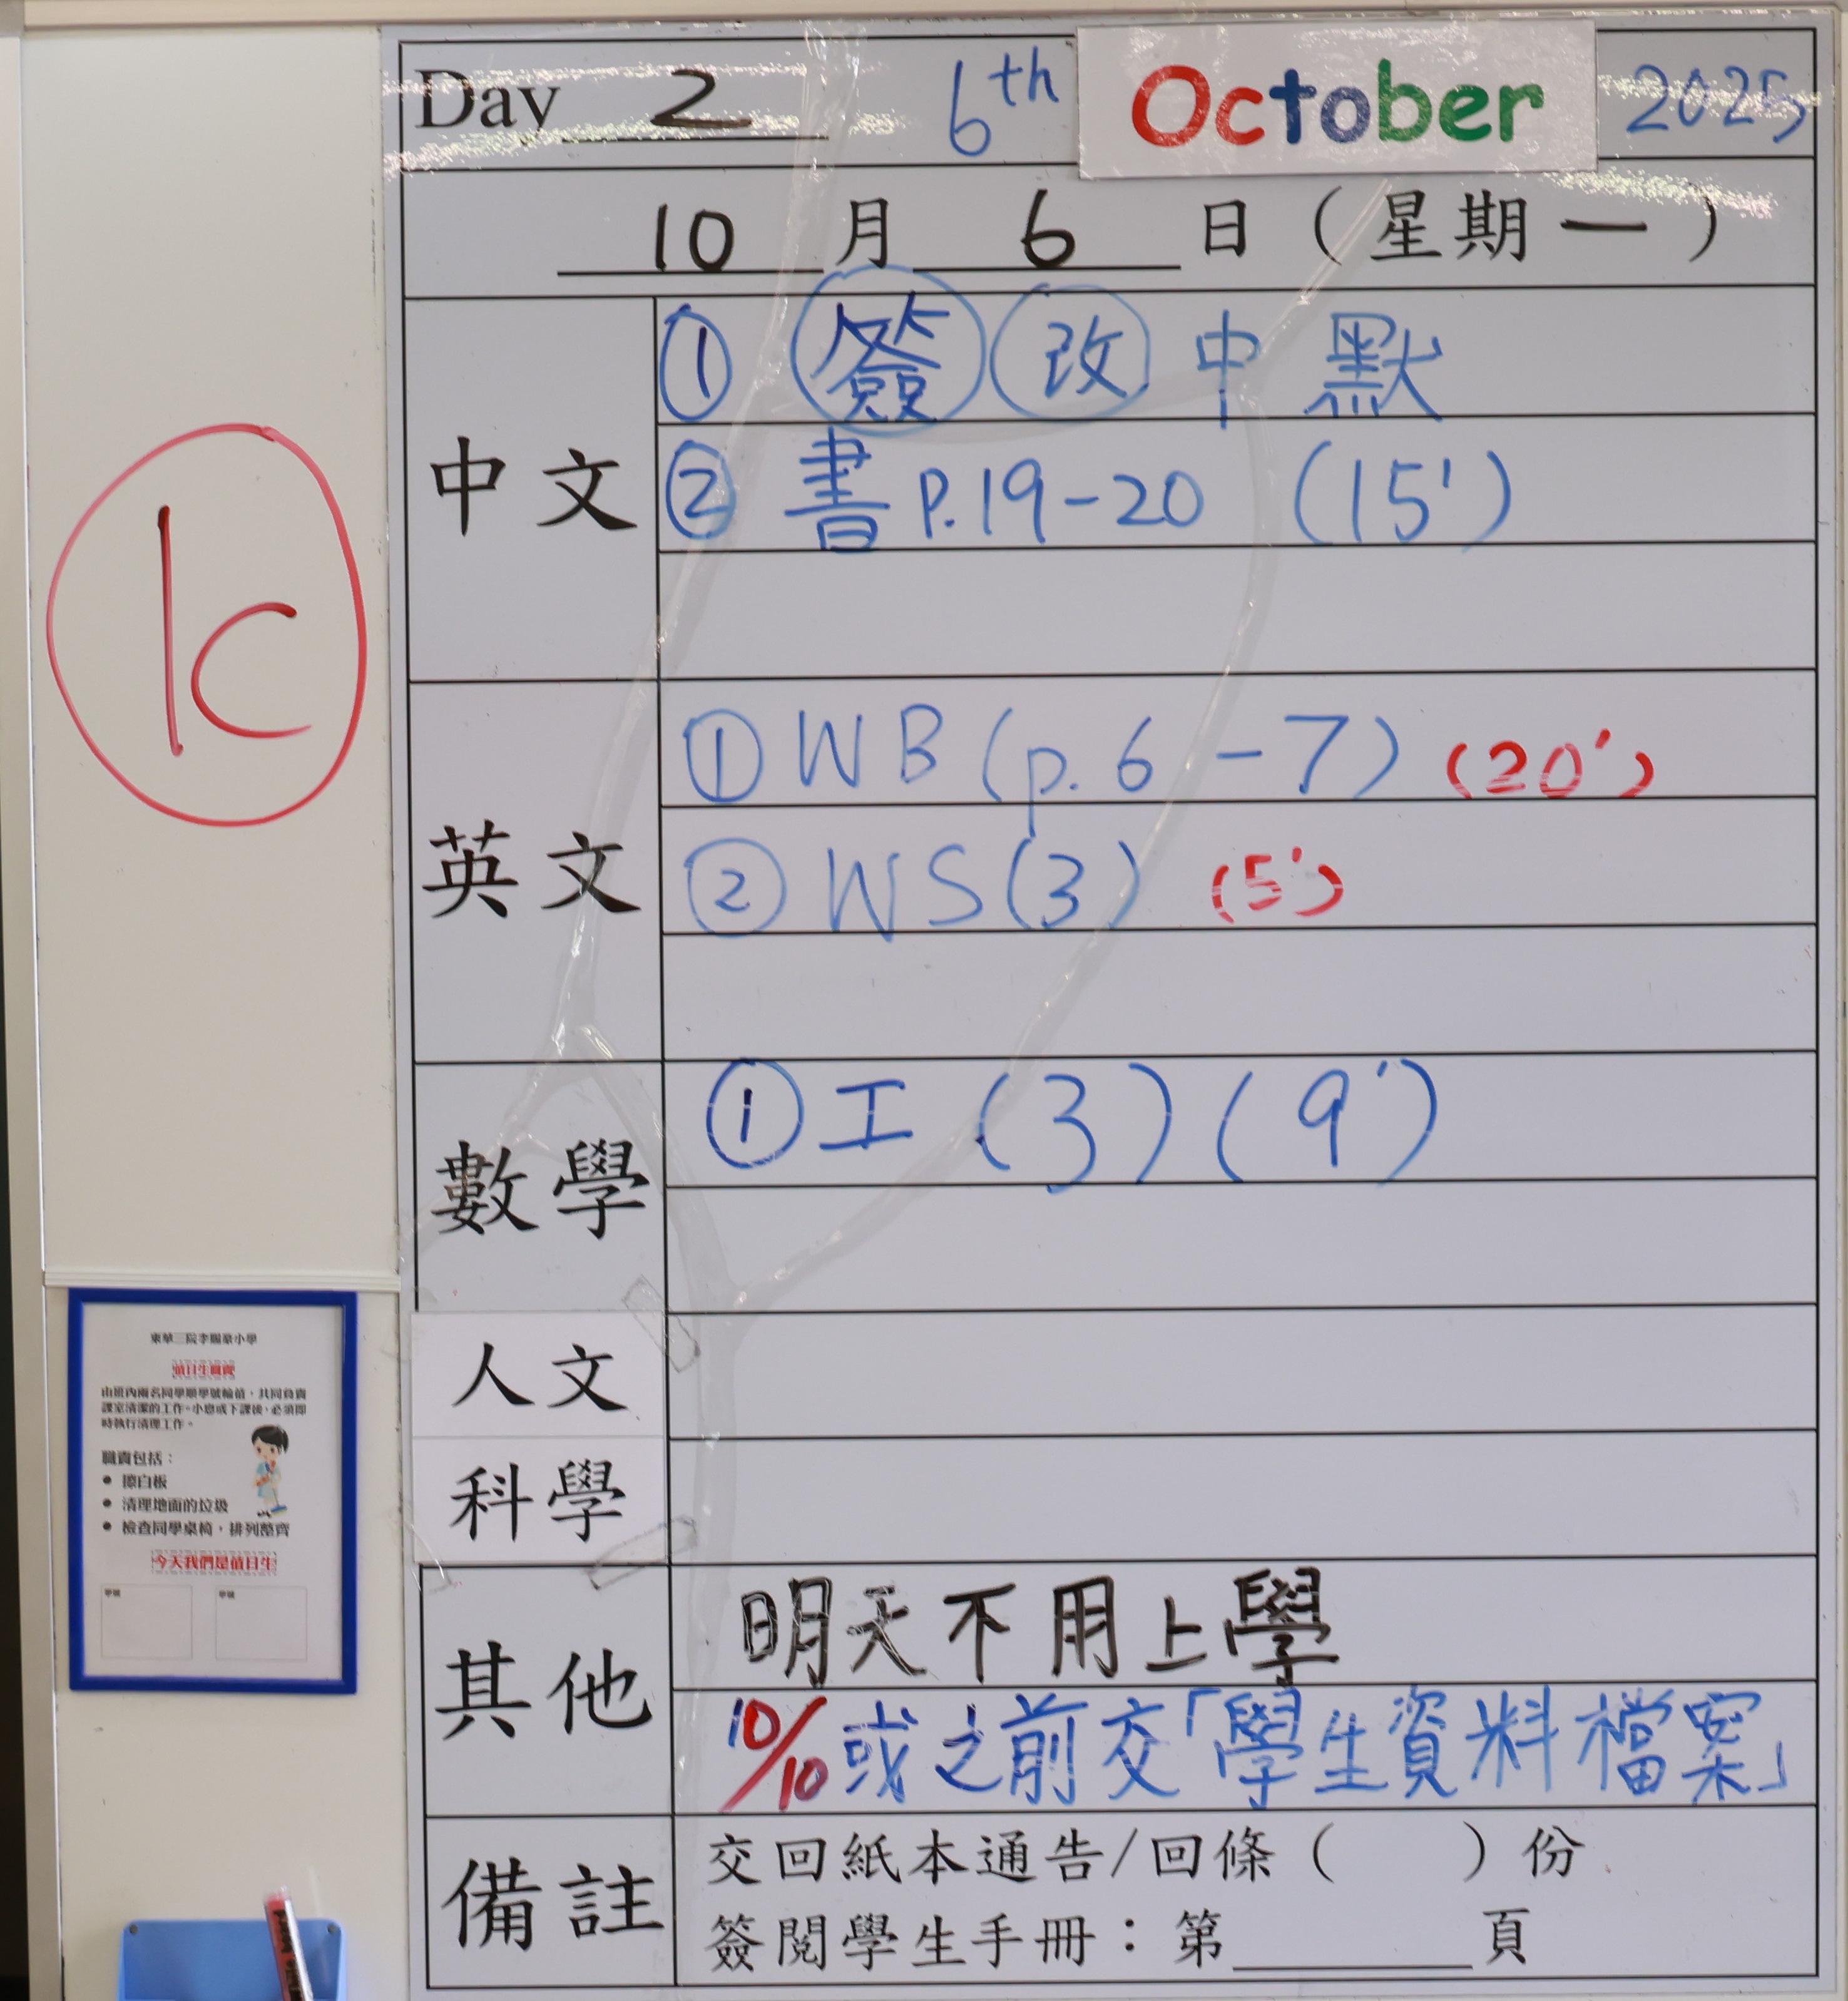 Day 2 6th October 2025
10 月 6 日 ( 星期 一 )
中文
① 簽 改 中 默
② 書 P.19-20 (15')
英文
① WB (p. 6 - 7) (20')
② WS (3) (5')
數學
① 工 (3) (9')
人文
科學
其他
明天不用上學
10/10 或之前交「學生資料檔案」
備註
交回紙本通告/回條 ( ) 份
簽閱學生手冊：第______頁
1C
值日生職責
由班內兩名同學順學號輪值，共同負責
課室清潔的工作。小息或下課後，必須即
時執行清理工作。
職責包括：
● 擦白板
● 清理地面的垃圾
● 檢查同學桌椅，排列整齊
今天我們是值日生
學號 學號